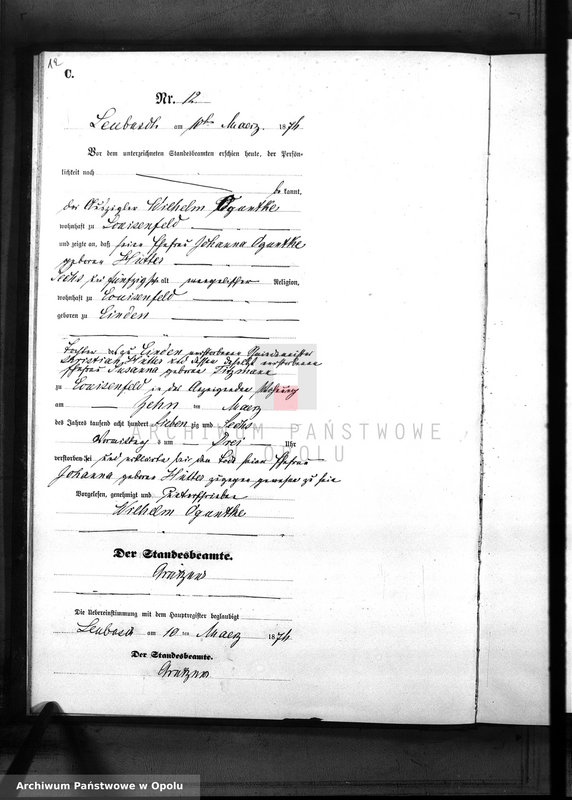 12
C.
Nr. 12
Leubusch am 10ten Maerz 1876
Vor dem unterzeichneten Standesbeamten erschien heute, der Persön-
lichkeit nach
be kannt,
der Auszügler Wilhelm Ogantke
wohnhaft zu Louisenfeld
und zeigte an, daß seine Ehefrau Johanna Ogantke
geborene Hütter
Sechs und fünfzig Jahr alt evangelischer Religion,
wohnhaft zu Louisenfeld
geboren zu Linden
Tochter des zu Linden verstorbenen
Christian Hütter und dessen daselbst verstorbenen
Ehefrau Susanna geborene
zu Louisenfeld in des Anzeigenden Wohnung
am Zehn ten Maerz
des Jahres tausend acht hundert sieben zig und Sechs
Vormittag s um Drei Uhr
verstorben sei und erklaerte bei dem Tode seiner Ehefrau
Johanna geborene Hütter zugegen gewesen zu sein
Vorgelesen, genehmigt und Unterschrieben
Wilhelm Ogantke
Der Standesbeamte.
Die Uebereinstimmung mit dem Hauptregister beglaubigt
Leubusch am 10 ten Maerz 1876
Der Standesbeamte.
ARCHIWUM PAŃSTWOWE
W OPOLU
Archiwum Państwowe w Opolu